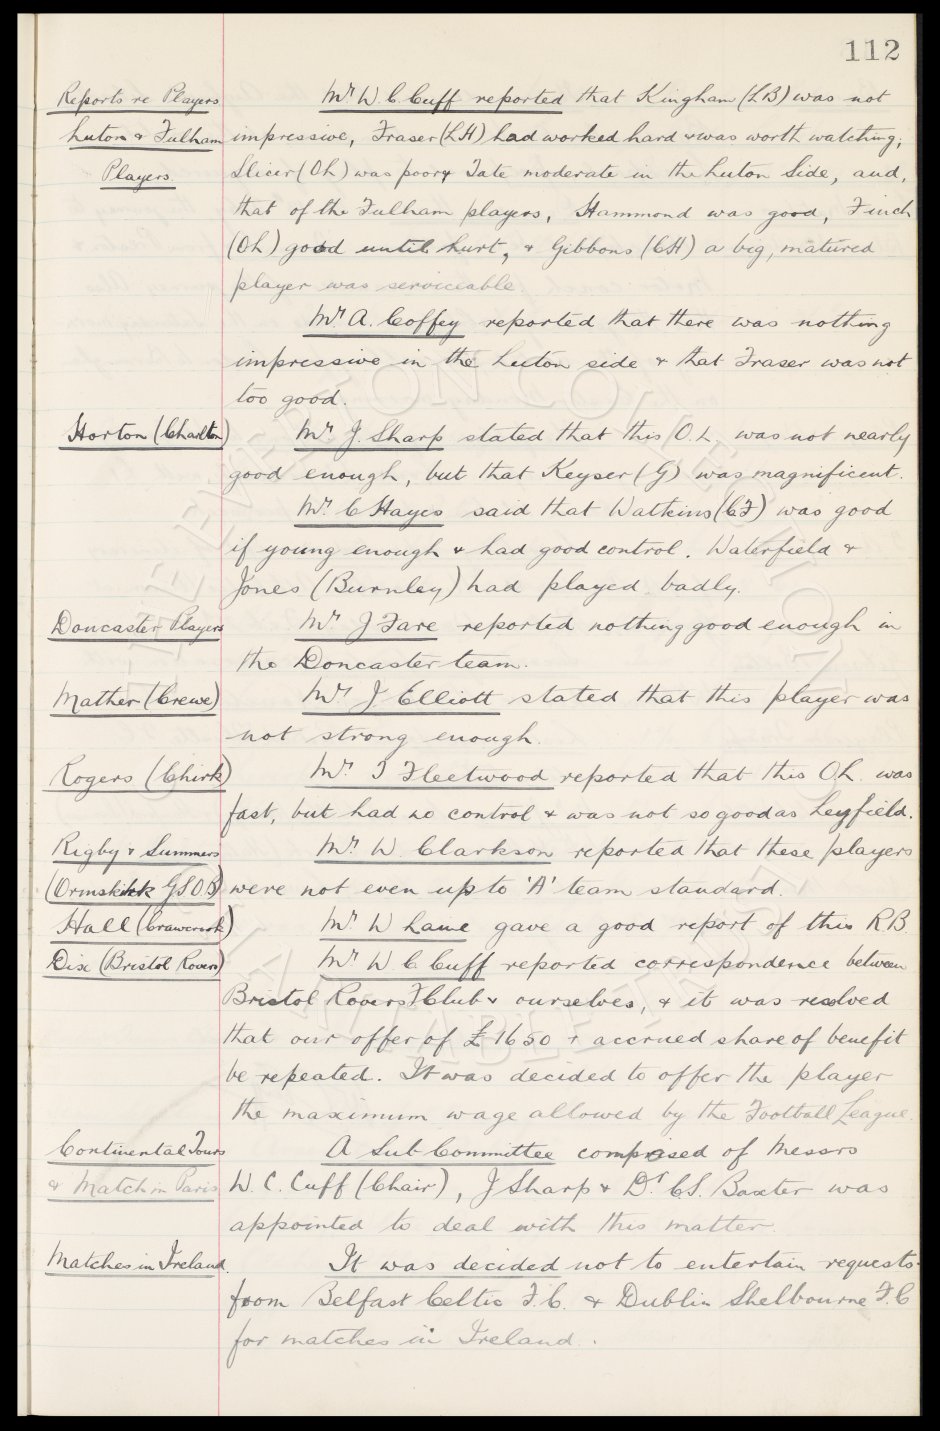 112
Reports re Players Mr W. C. Cuff reported that Kingham (LB) was not
Luton & Fulham impressive, Fraser (LH) had worked hard & was worth watching;
Players Slicer (OL) was poor & Tate moderate in the Luton Side, and,
that of the Fulham players, Hammond was good, Finch
(OL) good until hurt, & Gibbons (CH) a big, matured
player was serviceable.
Mr A. Coffey reported that there was nothing
impressive in the Luton side & that Fraser was not
too good.
Horton (Charlton) Mr J. Sharp stated that this O.L. was not nearly
good enough, but that Keyser (G) was magnificent.
Mr C Hayes said that Watkins (CF) was good
if young enough & had good control. Waterfield &
Jones (Burnley) had played badly.
Doncaster Players Mr J Fare reported nothing good enough in
the Doncaster team.
Mather (Crewe) Mr J Elliott stated that this player was
not strong enough.
Rogers (Chirk) Mr T Fleetwood reported that this OL. was
fast, but had no control & was not so good as Leyfield.
Rigby & Summers Mr W. Clarkson reported that these players
(Ormskirk GSOB) were not even up to 'A' team standard.
Hall (Crawcrook) Mr W Lame gave a good report of this RB.
Dix (Bristol Rovers) Mr W. C Cuff reported correspondence between
Bristol Rovers F Club & ourselves, & it was resolved
that our offer of £1650 + accrued share of benefit
be repeated. It was decided to offer the player
the maximum wage allowed by the Football League.
Continental Tours A Sub Committee comprised of Messrs
& Match in Paris W. C. Cuff (Chair), J Sharp & Dr C.S. Baxter was
appointed to deal with this matter
Matches in Ireland. It was decided not to entertain requests
from Belfast Celtic F.C. & Dublin Shelbourne F.C
for matches in Ireland.